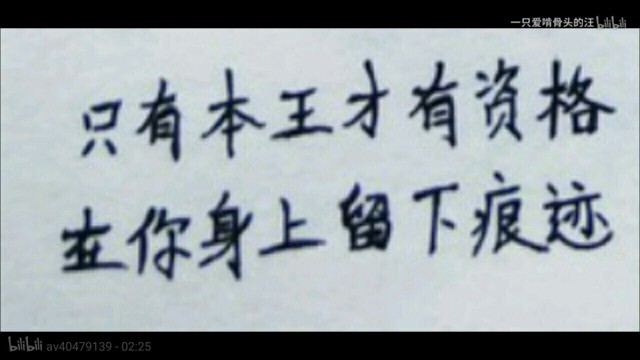 一只爱啃骨头的汪 bilibili
只有本王才有资格
在你身上留下痕迹
bilibili av40479139 - 02:25